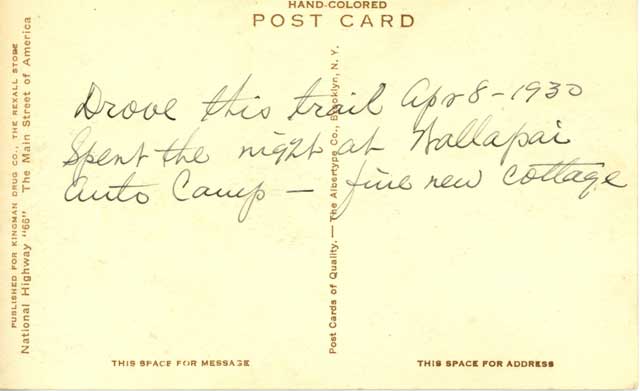 HAND-COLORED
POST CARD
PUBLISHED FOR KINGMAN DRUG CO., THE REXALL STORE
National Highway "66" The Main Street of America
Drove this trail Apr 8-1930
Spent the night at Wallapai
Auto Camp — fine new cottage
Post Cards of Quality. — The Albertype Co., Brooklyn, N. Y.
THIS SPACE FOR MESSAGE
THIS SPACE FOR ADDRESS